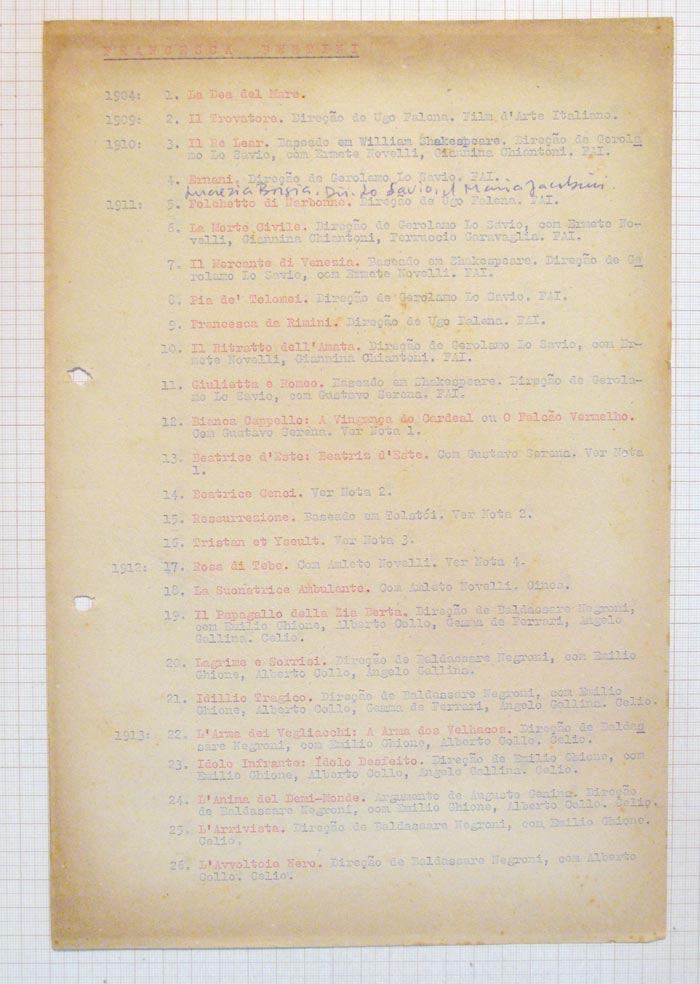 FRANCESCA BERTINI
1904: 1. La Dea del Mare.
1909: 2. Il Trovatore. Direção de Ugo Falena. Film d'Arte Italiano.
1910: 3. Il Re Lear. Baseado em William Shakespeare. Direção de Gerola
mo Lo Savio, com Ermete Novelli, Giannina Chiantoni. FAI.
4. Ernani. Direção de Gerolamo Lo Savio. FAI.
Lucrezia Borgia. Dir. Lo Savio, c/ Maria Jacobini.
1911: 5. Folchetto di Narbonne. Direção de Ugo Falena. FAI.
6. La Morte Civile. Direção de Gerolamo Lo Savio, com Ermete No-
velli, Giannina Chiantoni, Ferruccio Garavaglia. FAI.
7. Il Mercante di Venezia. Baseado em Shakespeare. Direção de Ge
rolamo Lo Savio, com Ermete Novelli. FAI.
8. Pia de' Tolomei. Direção de Gerolamo Lo Savio. FAI.
9. Francesca da Rimini. Direção de Ugo Falena. FAI.
10. Il Ritratto dell'Amata. Direção de Gerolamo Lo Savio, com Er-
mete Novelli, Giannina Chiantoni. FAI.
11. Giulietta e Romeo. Baseado em Shakespeare. Direção de Gerola-
mo Lo Savio, com Gustavo Serena. FAI.
12. Bianca Cappello: A Vingança do Cardeal ou O Falcão Vermelho.
Com Gustavo Serena. Ver Nota 1.
13. Beatrice d'Este: Beatriz d'Este. Com Gustavo Serena. Ver Nota
1.
14. Beatrice Cenci. Ver Nota 2.
15. Ressurrezione. Baseado em Tolstói. Ver Nota 2.
16. Tristan et Yseult. Ver Nota 3.
1912: 17. Rosa di Tebe. Com Amleto Novelli. Ver Nota 4.
18. La Suonatrice Ambulante. Com Amleto Novelli. Cines.
19. Il Papagallo della Zia Berta. Direção de Baldassare Negroni,
com Emilio Ghione, Alberto Collo, Gemma de Ferrari, Angelo
Gallina. Celio.
20. Lagrime e Sorrisi. Direção de Baldassare Negroni, com Emilio
Ghione, Alberto Collo, Angelo Gallina.
21. Idillio Tragico. Direção de Baldassare Negroni, com Emilio
Ghione, Alberto Collo, Gemma de Ferrari, Angelo Gallina. Celio.
1913: 22. L'Arma dei Vegliacchi: A Arma dos Velhacos. Direção de Baldas
sare Negroni, com Emilio Ghione, Alberto Collo. Celio.
23. Idolo Infranto: Ídolo Desfeito. Direção de Emilio Ghione, com
Emilio Ghione, Alberto Collo, Angelo Gallina. Celio.
24. L'Anima del Demi-Monde. Argumento de Augusto Genina. Direção
de Baldassare Negroni, com Emilio Ghione, Alberto Collo. Celio.
25. L'Arrivista. Direção de Baldassare Negroni, com Emilio Ghione.
Celio.
26. L'Avvoltoio Nero. Direção de Baldassare Negroni, com Alberto
Collo. Celio.